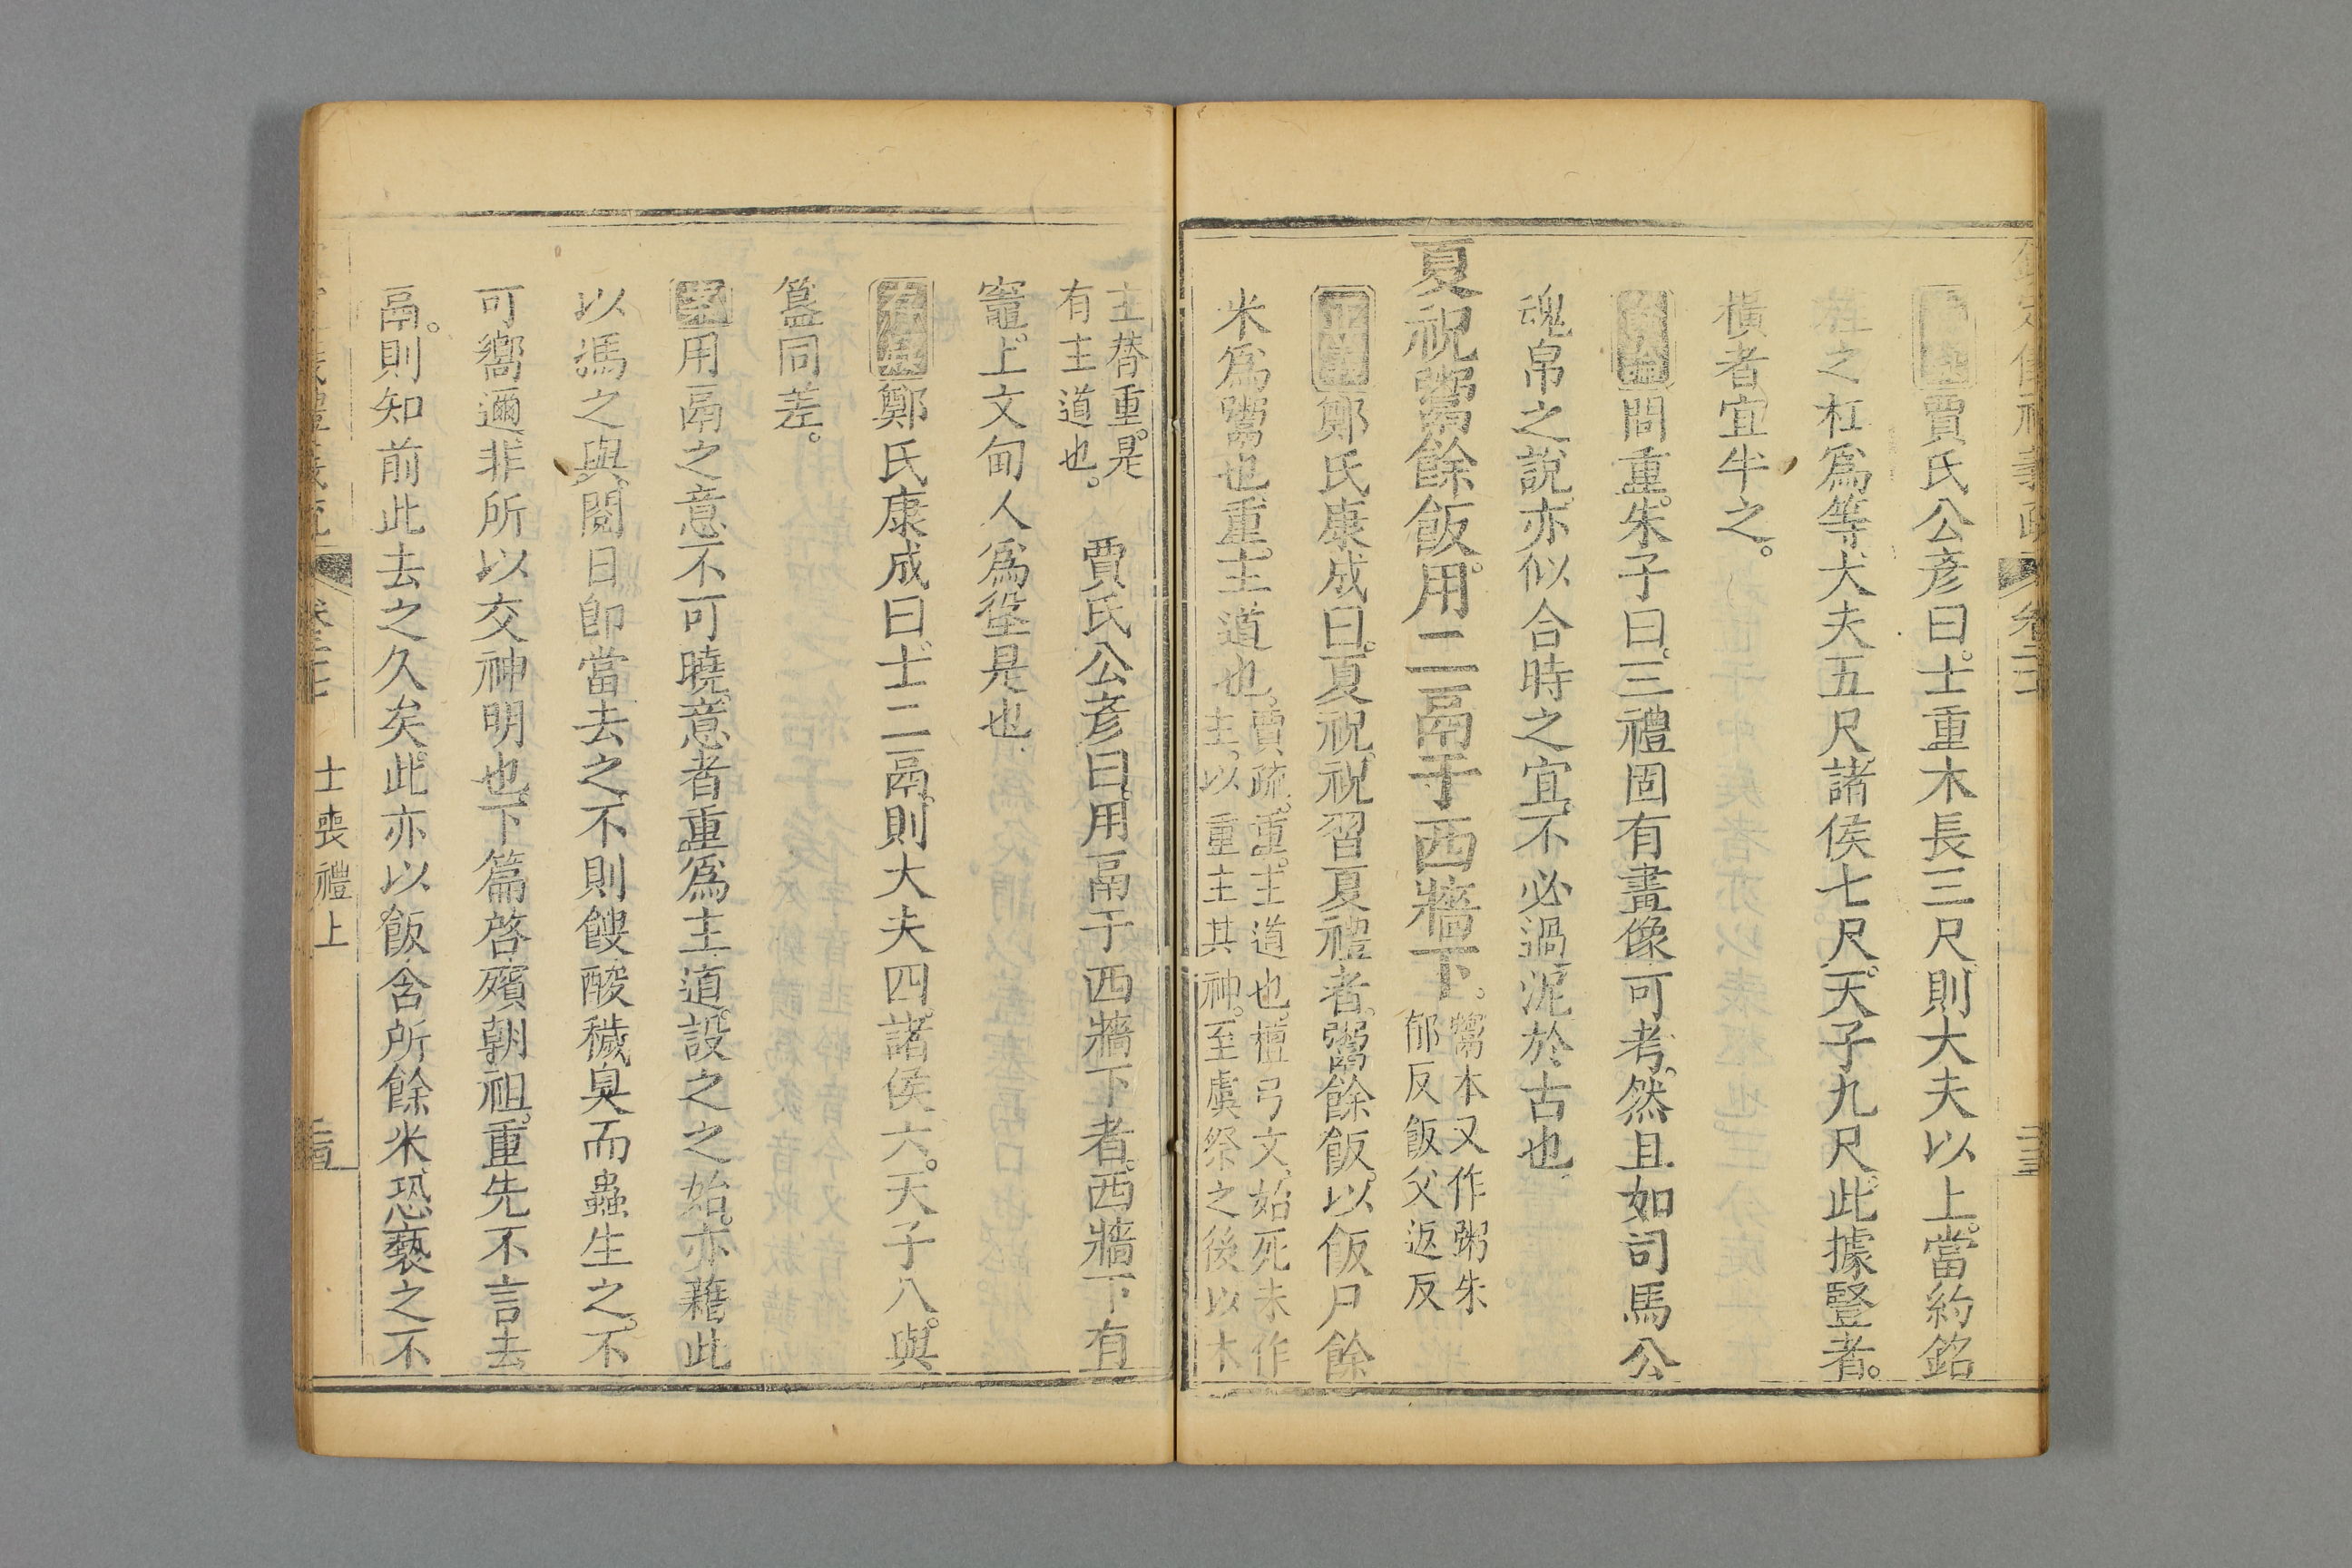 賈氏公彦曰。士重木長三尺。則大夫以上。當約銘
之杠爲等。大夫五尺。諸侯七尺。天子九尺。此據豎者。
橫者宜半之。
問重。朱子曰。三禮固有畫像可考。然且如司馬公
魂帛之說。亦似合時之宜。不必過泥於古也。
夏祝鬻餘飯。用二鬲于西牆下。鬻本又作粥朱
郁反飯父返反
正義鄭氏康成曰。夏祝。祝習夏禮者。鬻餘飯。以飯尸餘
米爲鬻也。重。主道也。賈疏。重。主道也。檀弓文。始死未作
主。以重主其神。至虞祭之後以木
主替重。是
有主道也。
賈氏公彦曰。用鬲于西牆下者。西牆下有
竈。上文甸人爲垼是也。
鄭氏康成曰。士二鬲。則大夫四。諸侯六。天子八。與
簋同差。
用鬲之意不可曉。意者重爲主道。設之之始。亦藉此
以馮之與。閱日卽當去之。不則餿酸穢臭而蟲生之。不
可嚮邇。非所以交神明也。下篇啓殯朝祖。重先不言去
鬲。則知前此去之久矣。此亦以飯含所餘米。恐褻之不
士喪禮上